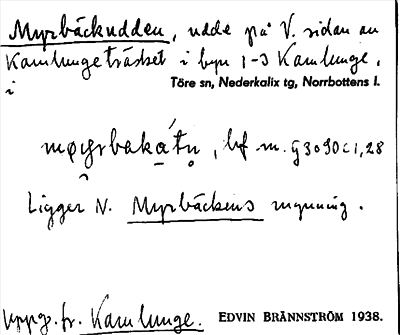 Myrbäckudden, udde på V. sidan av
Kamlungeträsket i byn 1-3 Kamlunge,
i Töre sn, Nederkalix tg, Norrbottens l.
bf m.
Ligger N. Myrbäckens mynning.
Uppg. fr. Kamlunge. EDVIN BRÄNNSTRÖM 1938.